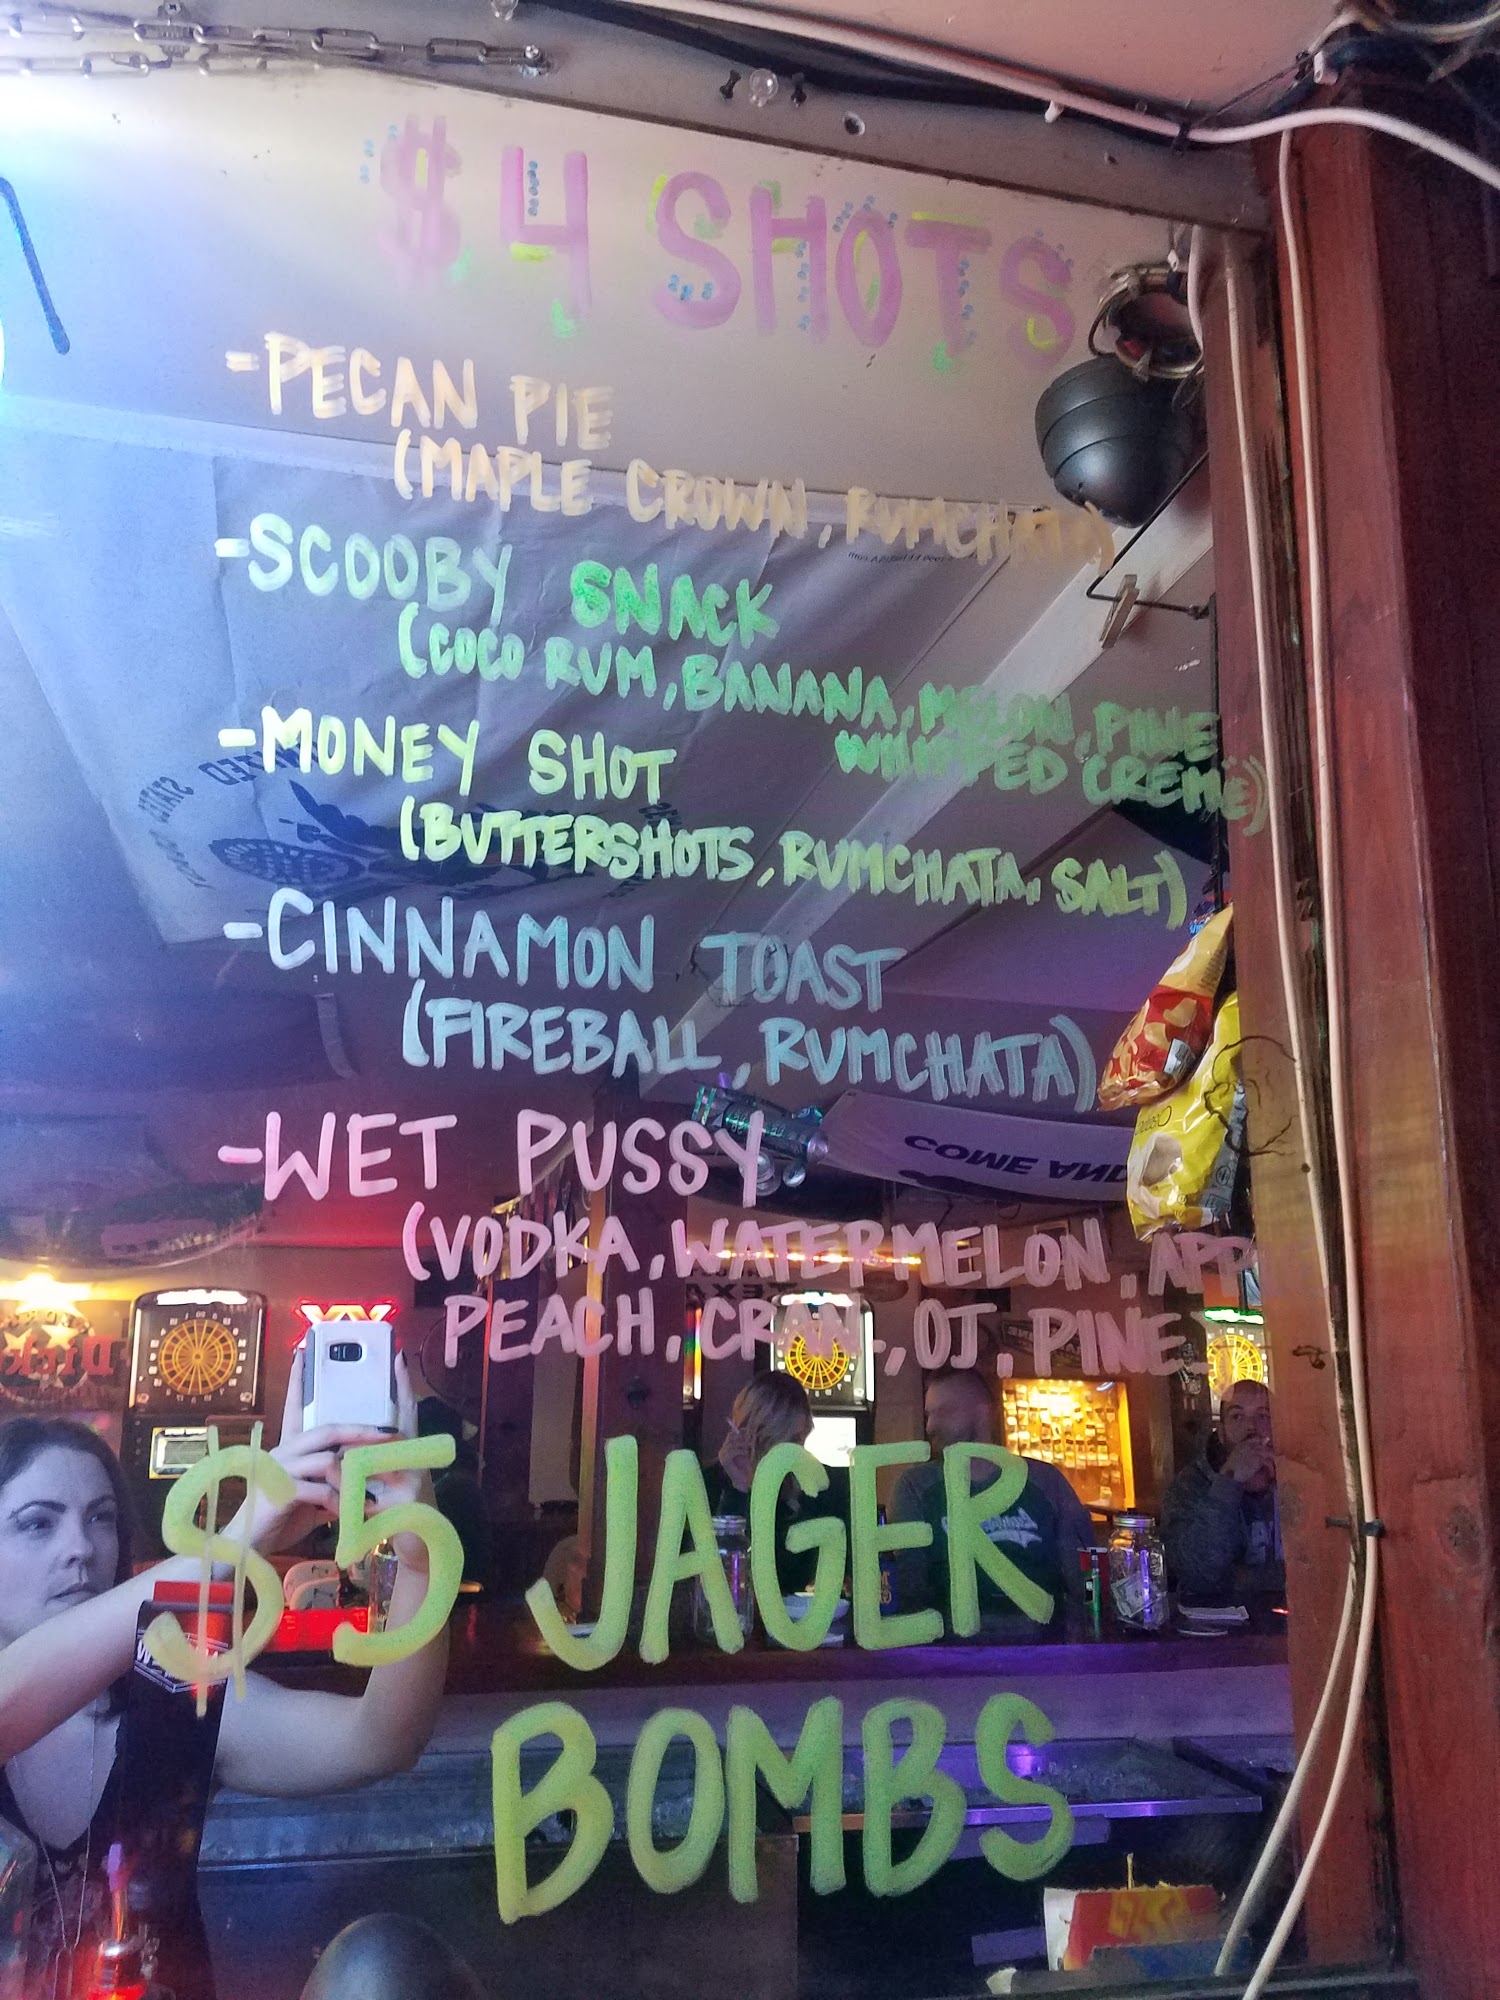 $4 SHOTS
-PECAN PIE
(MAPLE CROWN, RUMCHATA)
-SCOOBY SNACK
(COCO RUM, BANANA, MELON, PINE
WHIPPED CREME)
-MONEY SHOT
(BUTTERSHOTS, RUMCHATA, SALT)
-CINNAMON TOAST
(FIREBALL, RUMCHATA)
-WET PUSSY
(VODKA, WATERMELON, APP
PEACH, CRAN, OJ, PINE
$5 JAGER
BOMBS
COME AND